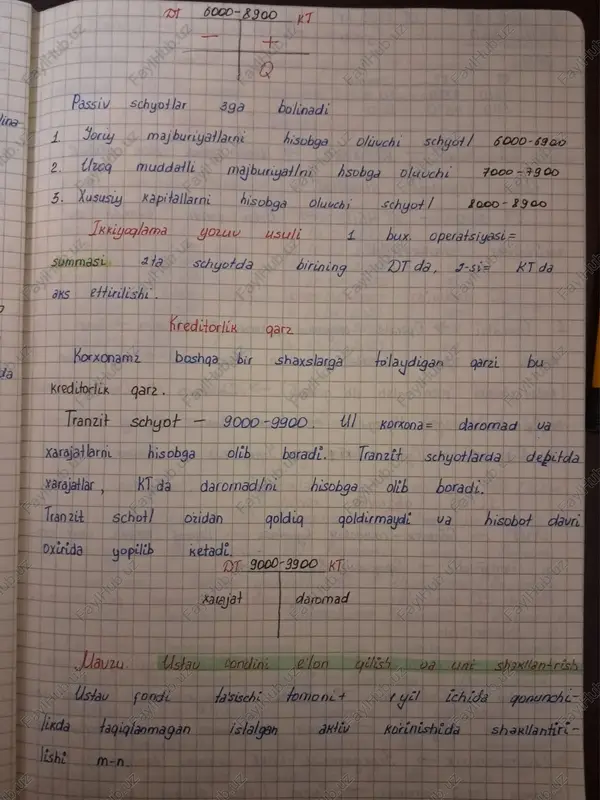 DT 6000-8900 KT
- +
Q
Passiv schyotlar 3ga bolinadi
1. Joriy majburiyatlarni hisobga oluvchi schyot/ 6000-6900
2. Uzoq muddatli majburiyat/ni hsobga oluvchi 7000-7900
3. Xususiy kapitallarni hisobga oluvchi schyot/ 8000-8900
Ikkiyoqlama yozuv usuli 1 bux. operatsiyasi=
summasi 2ta schyotda birining DT da, 2-si= KT da
aks ettirilishi.
Kreditorlik qarz
Korxonamz boshqa bir shaxslarga to'laydigan qarzi bu
kreditorlik qarz.
Tranzit schyot - 9000-9900. U korxona= daromad va
xarajatlarni hisobga olib boradi. Tranzit schyotlarda debitda
xarajatlar, KT da daromad/ni hisobga olib boradi.
Tranzit schot/ ozidan qoldiq qoldirmaydi va hisobot davri
oxirida yopilib ketadi.
DT 9000-9900 KT
xarajat daromad
Mavzu. Ustav fondini e'lon qilish va uni shakllan-rish
Ustav fondi ta'sischi tomoni+ 1 yil ichida qonunchi-
likda taqiqlanmagan istalgan aktiv korinishida shakllantiri-
lishi m-n.
lina
da
FayllHub.uz